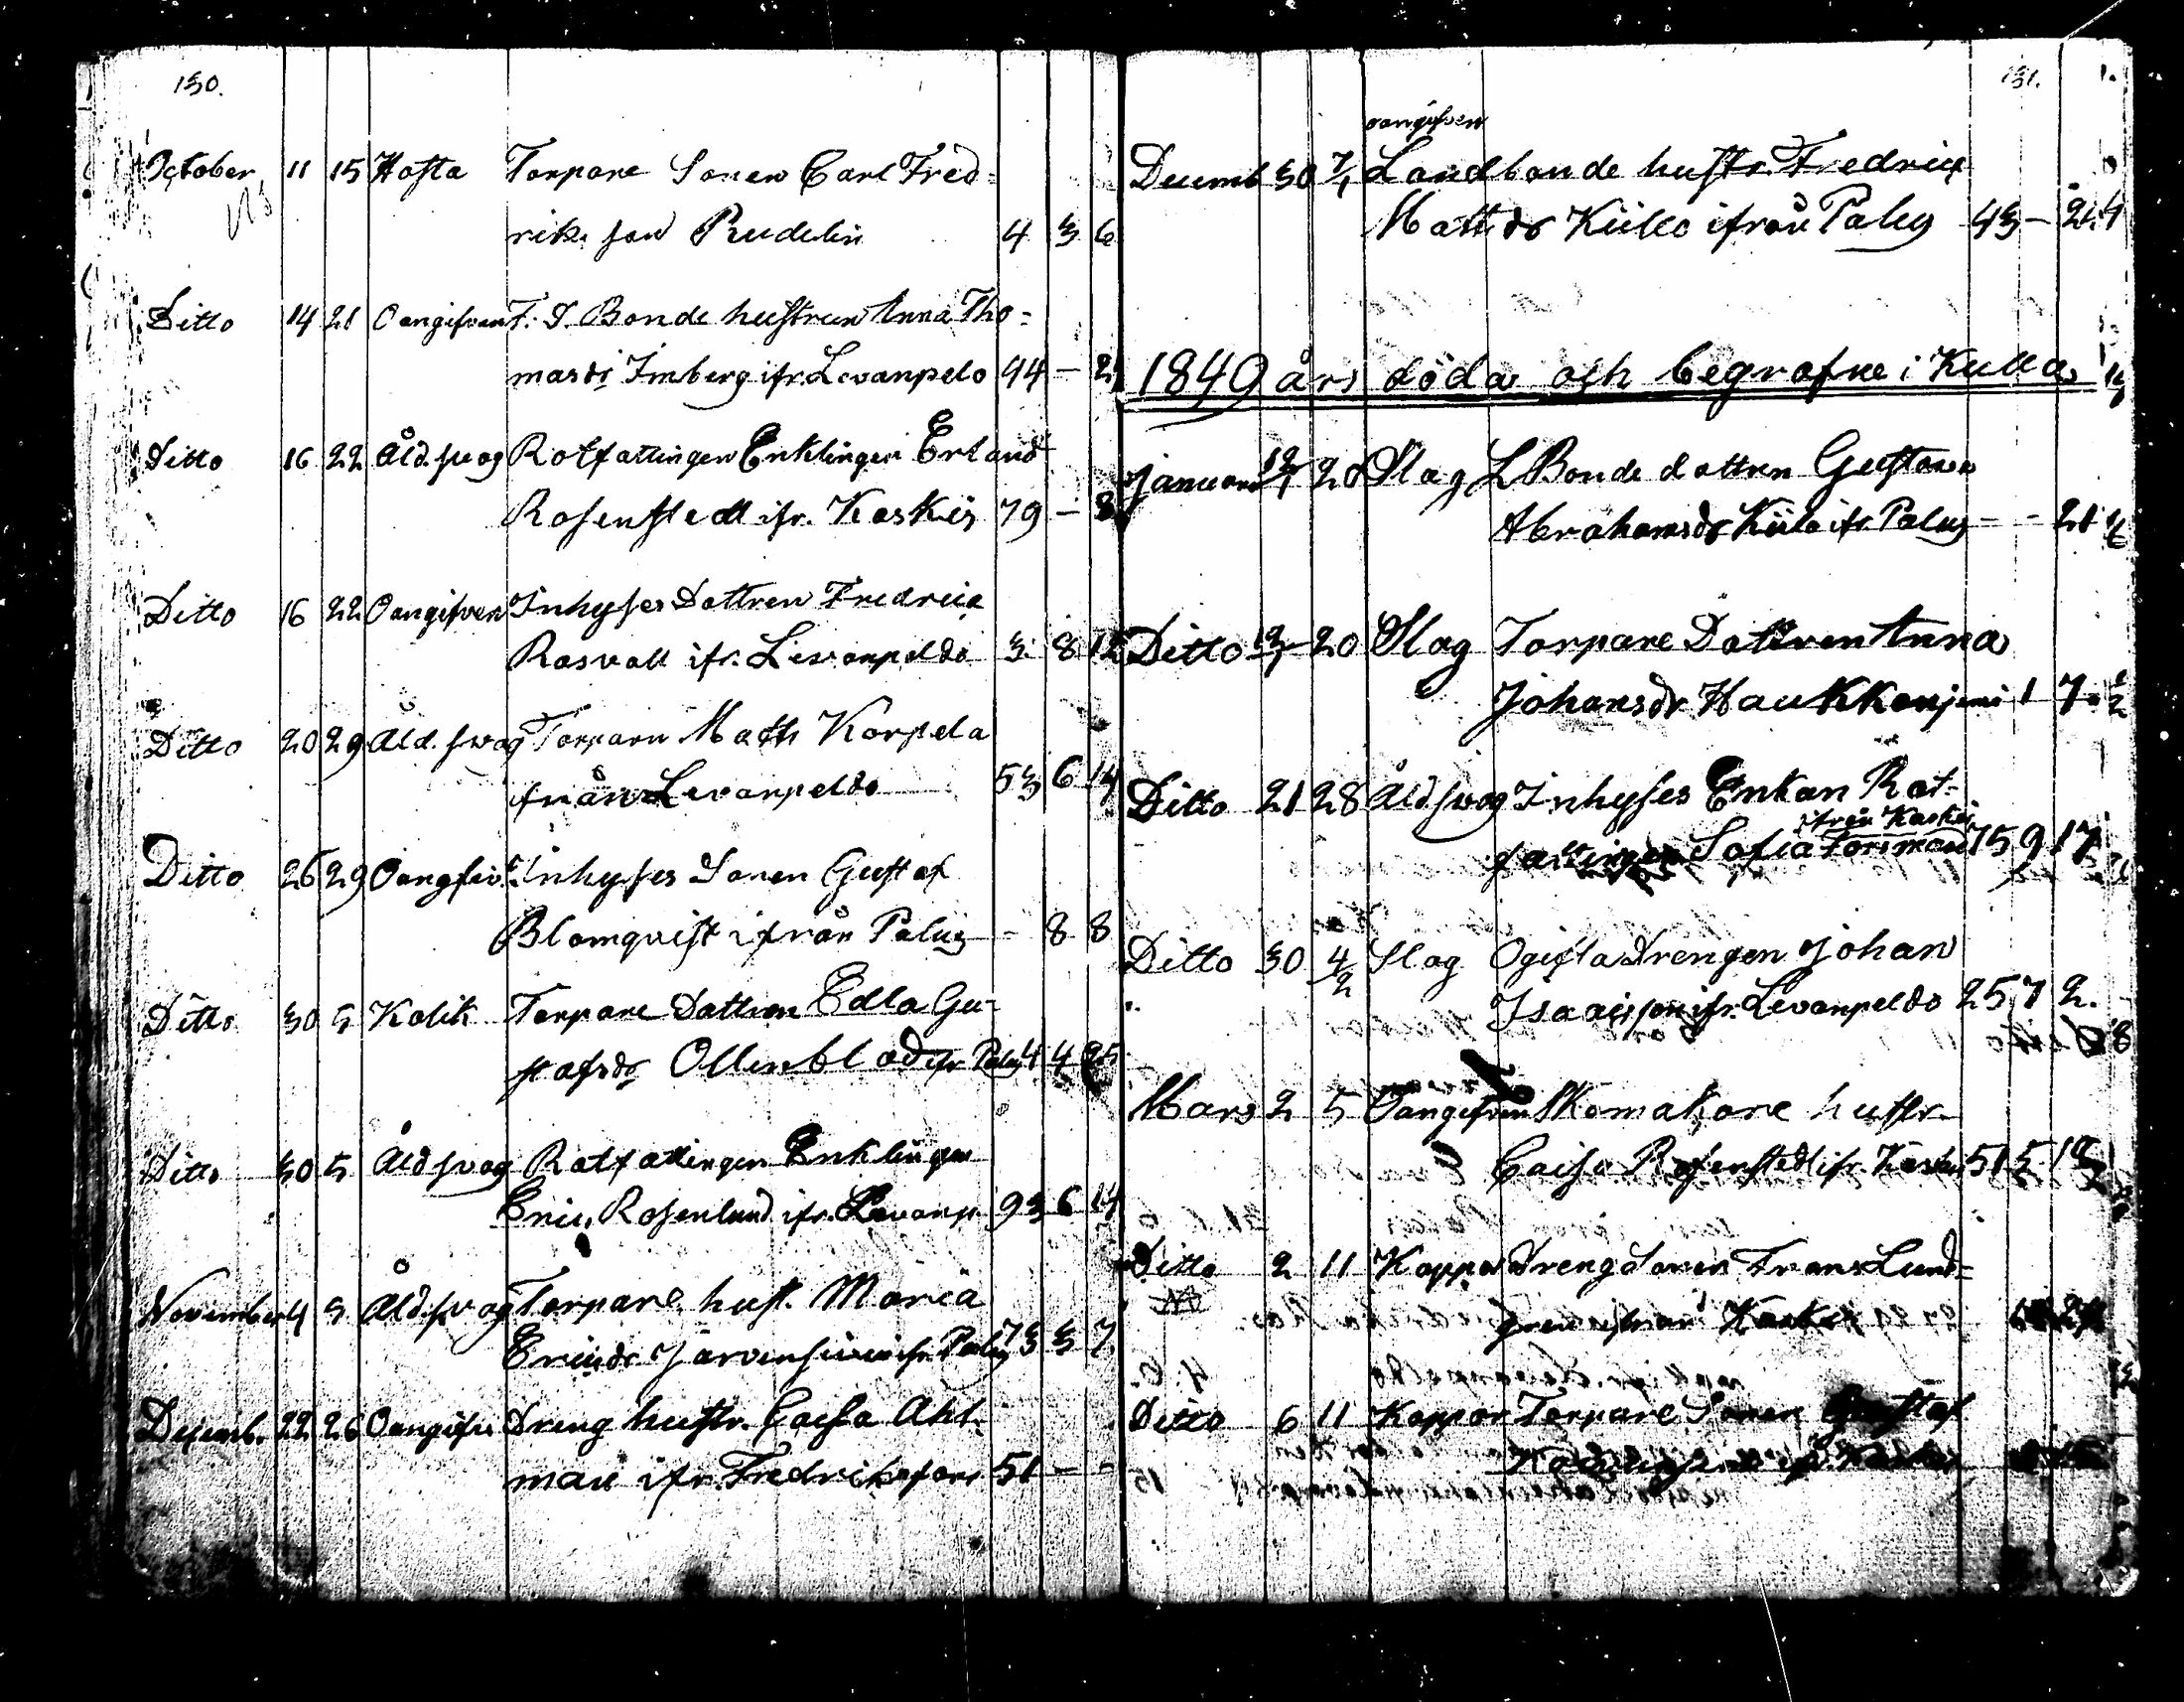 130.
October 11 15 Hosta Torpare Sonen Carl Fred=
rik son Rudelin 4 3 6
Ditto 14 21 Oangifven F. D. Bonde hustrun Anna Tho=
masdr Imberg ifr. Levanpelo 44 - 2
Ditto 16 22 Åld. svag Rotfattingen Enklingen Erland
Rosenstedt ifr. Koskis 79 - 8
Ditto 16 22 Oangifven Inhyses Dottren Fredrica
Rosvall ifr. Levanpeldo 3 8 12
Ditto 20 29 Åld. svag Torparn Math Korpela
ifrån Levanpeldo 53 6 14
Ditto 26 29 Inhyses Sonen Gustaf
Blomqvist ifrån Palus - 8 8
Ditto 30 5 Kolik Torpare Dottren Edla Gu=
stafsdr Ollenblad ifr Palus 4 4 25
Ditto 30 5 Åld svag Rotfattingen Enklingen
Eric Rosenlund ifr. Levanp 93 6 14
November 4 5 Åld. svag Torpare hust. Maria
Ericsdr ifr Palus 73 3 7
Decemb. 22 26 Dreng hustr. Caisa Ahl=
man ifr. Fredriksfors 51 - -
131.
oangifven
Decemb 30 7/1 Landbonde hustr. Fredrica
Mattsdr ifrån Palus 43 - 24
1849 års döda och begrafne i Kulla
Januari 12/1 20 Slag L Bonde dottren Gustava
Abrahamsdr ifr Palus - - 21
Ditto 12/1 20 Slag Torpare Dottren Anna
Johansdr 1 7
Ditto 21 28 Åld svag Inhyses Enkan Rot-
ifrån Koskis
fattingen Sofia Forsman 75 9 17
Ditto 30 4/2 Slag Ogifta Drengen Johan
Isaacsson ifr. Levanpeldo 25 7 2
Mars 2 5 Oangifven Skomakare hustr.
Caisa Rosenstedt ifr. 51 5
Ditto 2 11 Koppor Dreng Sonen Frans Lund=
gren ifrån
Ditto 6 11 Koppor Torpare Sonen Gustaf